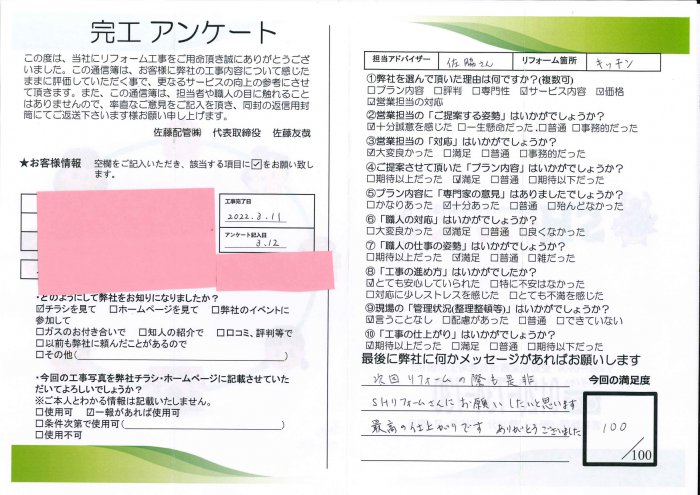 完工 アンケート
この度は、当社にリフォーム工事をご用命頂き誠にありがとうござ
いました。この通信簿は、お客様に弊社の工事内容について感じた
ままに評価していただく事で、更なるサービスの向上の参考にさせ
て頂きます。また、この通信簿は、担当者や職人の目に触れること
はありませんので、率直なご意見をご記入を頂き、同封の返信用封
筒にてご返送下さいます様お願い申し上げます。
佐藤配管㈱ 代表取締役 佐藤友哉
★お客様情報 空欄をご記入いただき、該当する項目に☑をお願い致し
ます。
工事完了日
2022.3.11
アンケート記入日
3.12
・どのようにして弊社をお知りになりましたか?
☑チラシを見て □ホームページを見て □弊社のイベントに
参加して
□ガスのお付き合いで □知人の紹介で □口コミ、評判等で
□以前も弊社に頼んだことがあるので
□その他( )
・今回の工事写真を弊社チラシ・ホームページに記載させていただ
いてよろしいでしょうか?
※ご本人とわかる情報は記載いたしません。
□使用可 ☑一報があれば使用可
□条件次第で使用可( )
□使用不可
担当アドバイザー 佐脇さん リフォーム箇所 キッチン
①弊社を選んで頂いた理由は何ですか?(複数可)
□プラン内容 □評判 □専門性 ☑サービス内容 ☑価格
☑営業担当の対応
②営業担当の「ご提案する姿勢」はいかがでしょうか?
☑十分誠意を感じた □一生懸命だった .□普通 □事務的だった
③営業担当の「対応」はいかがでしょうか?
☑大変良かった □満足 □普通 □事務的だった
④ご提案させて頂いた「プラン内容」はいかがでしょうか?
□期待以上だった ☑満足 □普通 □期待以下だった
⑤プラン内容に「専門家の意見」はありましたでしょうか?
□かなりあった ☑十分あった □普通 □殆んどなかった
⑥「職人の対応」はいかがでしょうか?
□大変良かった ☑満足 □普通 □良くなかった
⑦「職人の仕事の姿勢」はいかがでしょうか?
□期待以上だった ☑満足 □普通 □雑だった
⑧「工事の進め方」はいかがでしたか?
☑とても安心していられた □特に不安はなかった
□対応に少しストレスを感じた □とても不満を感じた
⑨現場の「管理状況(整理整頓等)」はいかがでしょうか?
☑言うことなし □配慮があった □普通 □できていない
⑩「工事の仕上がり」はいかがでしょうか?
☑期待以上だった □満足 □普通 □期待以下だった
最後に弊社に何かメッセージがあればお願いします
次回リフォームの際も是非
SHリフォームさんにお願いしたいと思います
最高の仕上がりです ありがとうございました
今回の満足度
100
/100